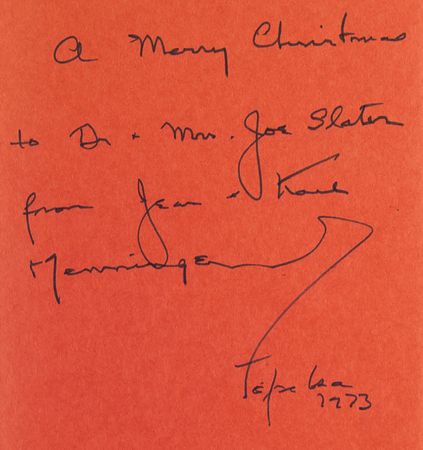 A Merry Christmas
to Dr + Mrs. Joe Slater
from Jean + Karl
Menninger
Topeka
1973